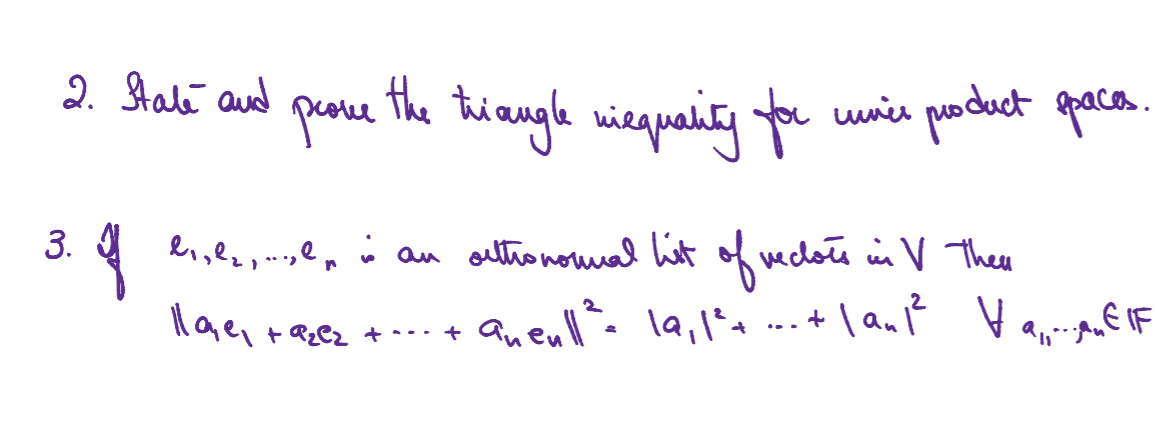 2. State and prove the triangle inequality for inner product spaces.
3. If e₁, e₂, ..., eₙ is an orthonormal list of vectors in V then
||a₁e₁ + a₂e₂ + ... + aₙeₙ||² = |a₁|² + ... + |aₙ|² ∀ a₁, ..., aₙ ∈ 𝔽